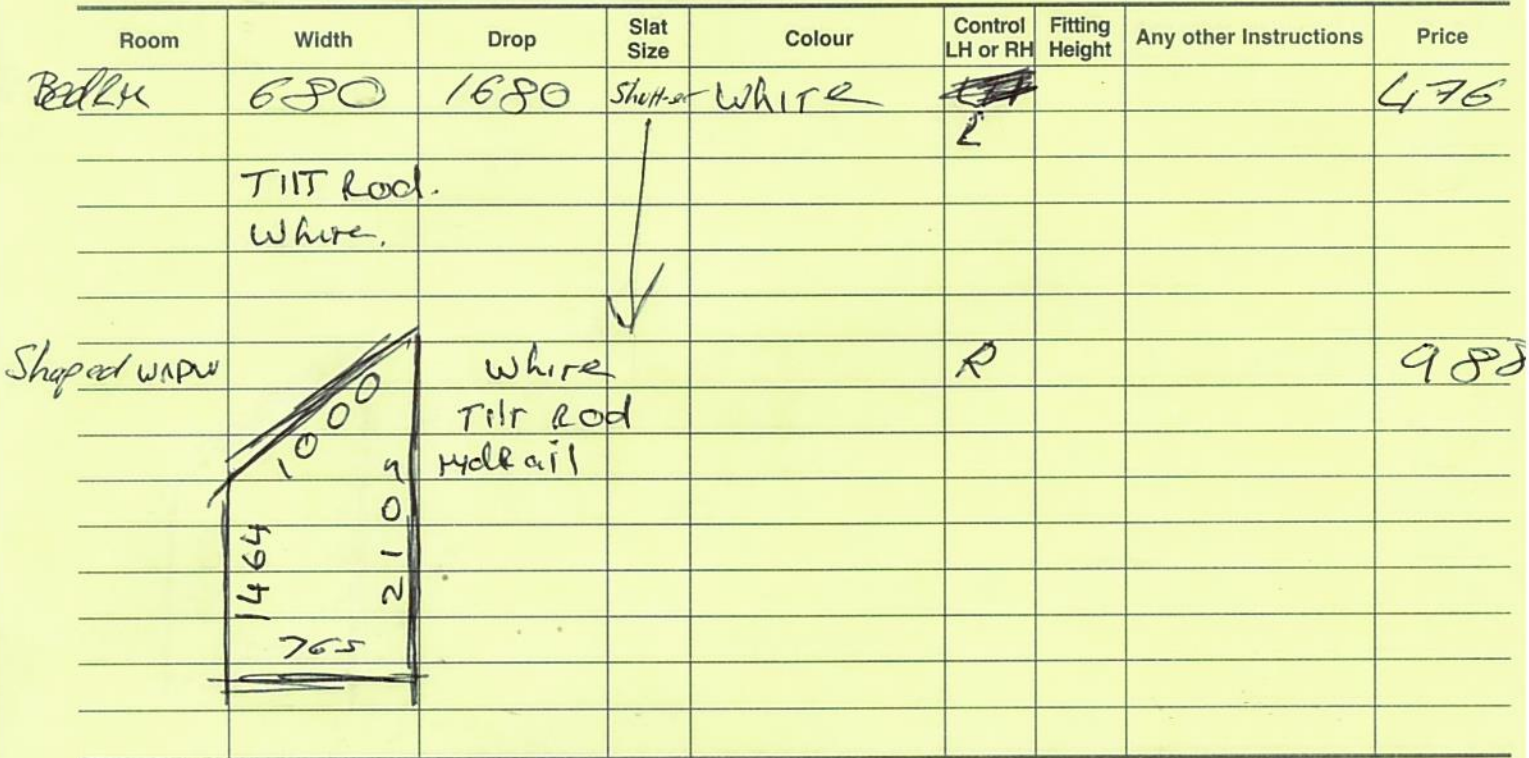 Room Width Drop Slat Size Colour Control LH or RH Fitting Height Any other Instructions Price
BedRM 680 1680 Shutter White 476
L
TIlT Rod.
White.
Shaped WNDW White R 988
Tilt Rod
MydRail
1000
1464
2107
765